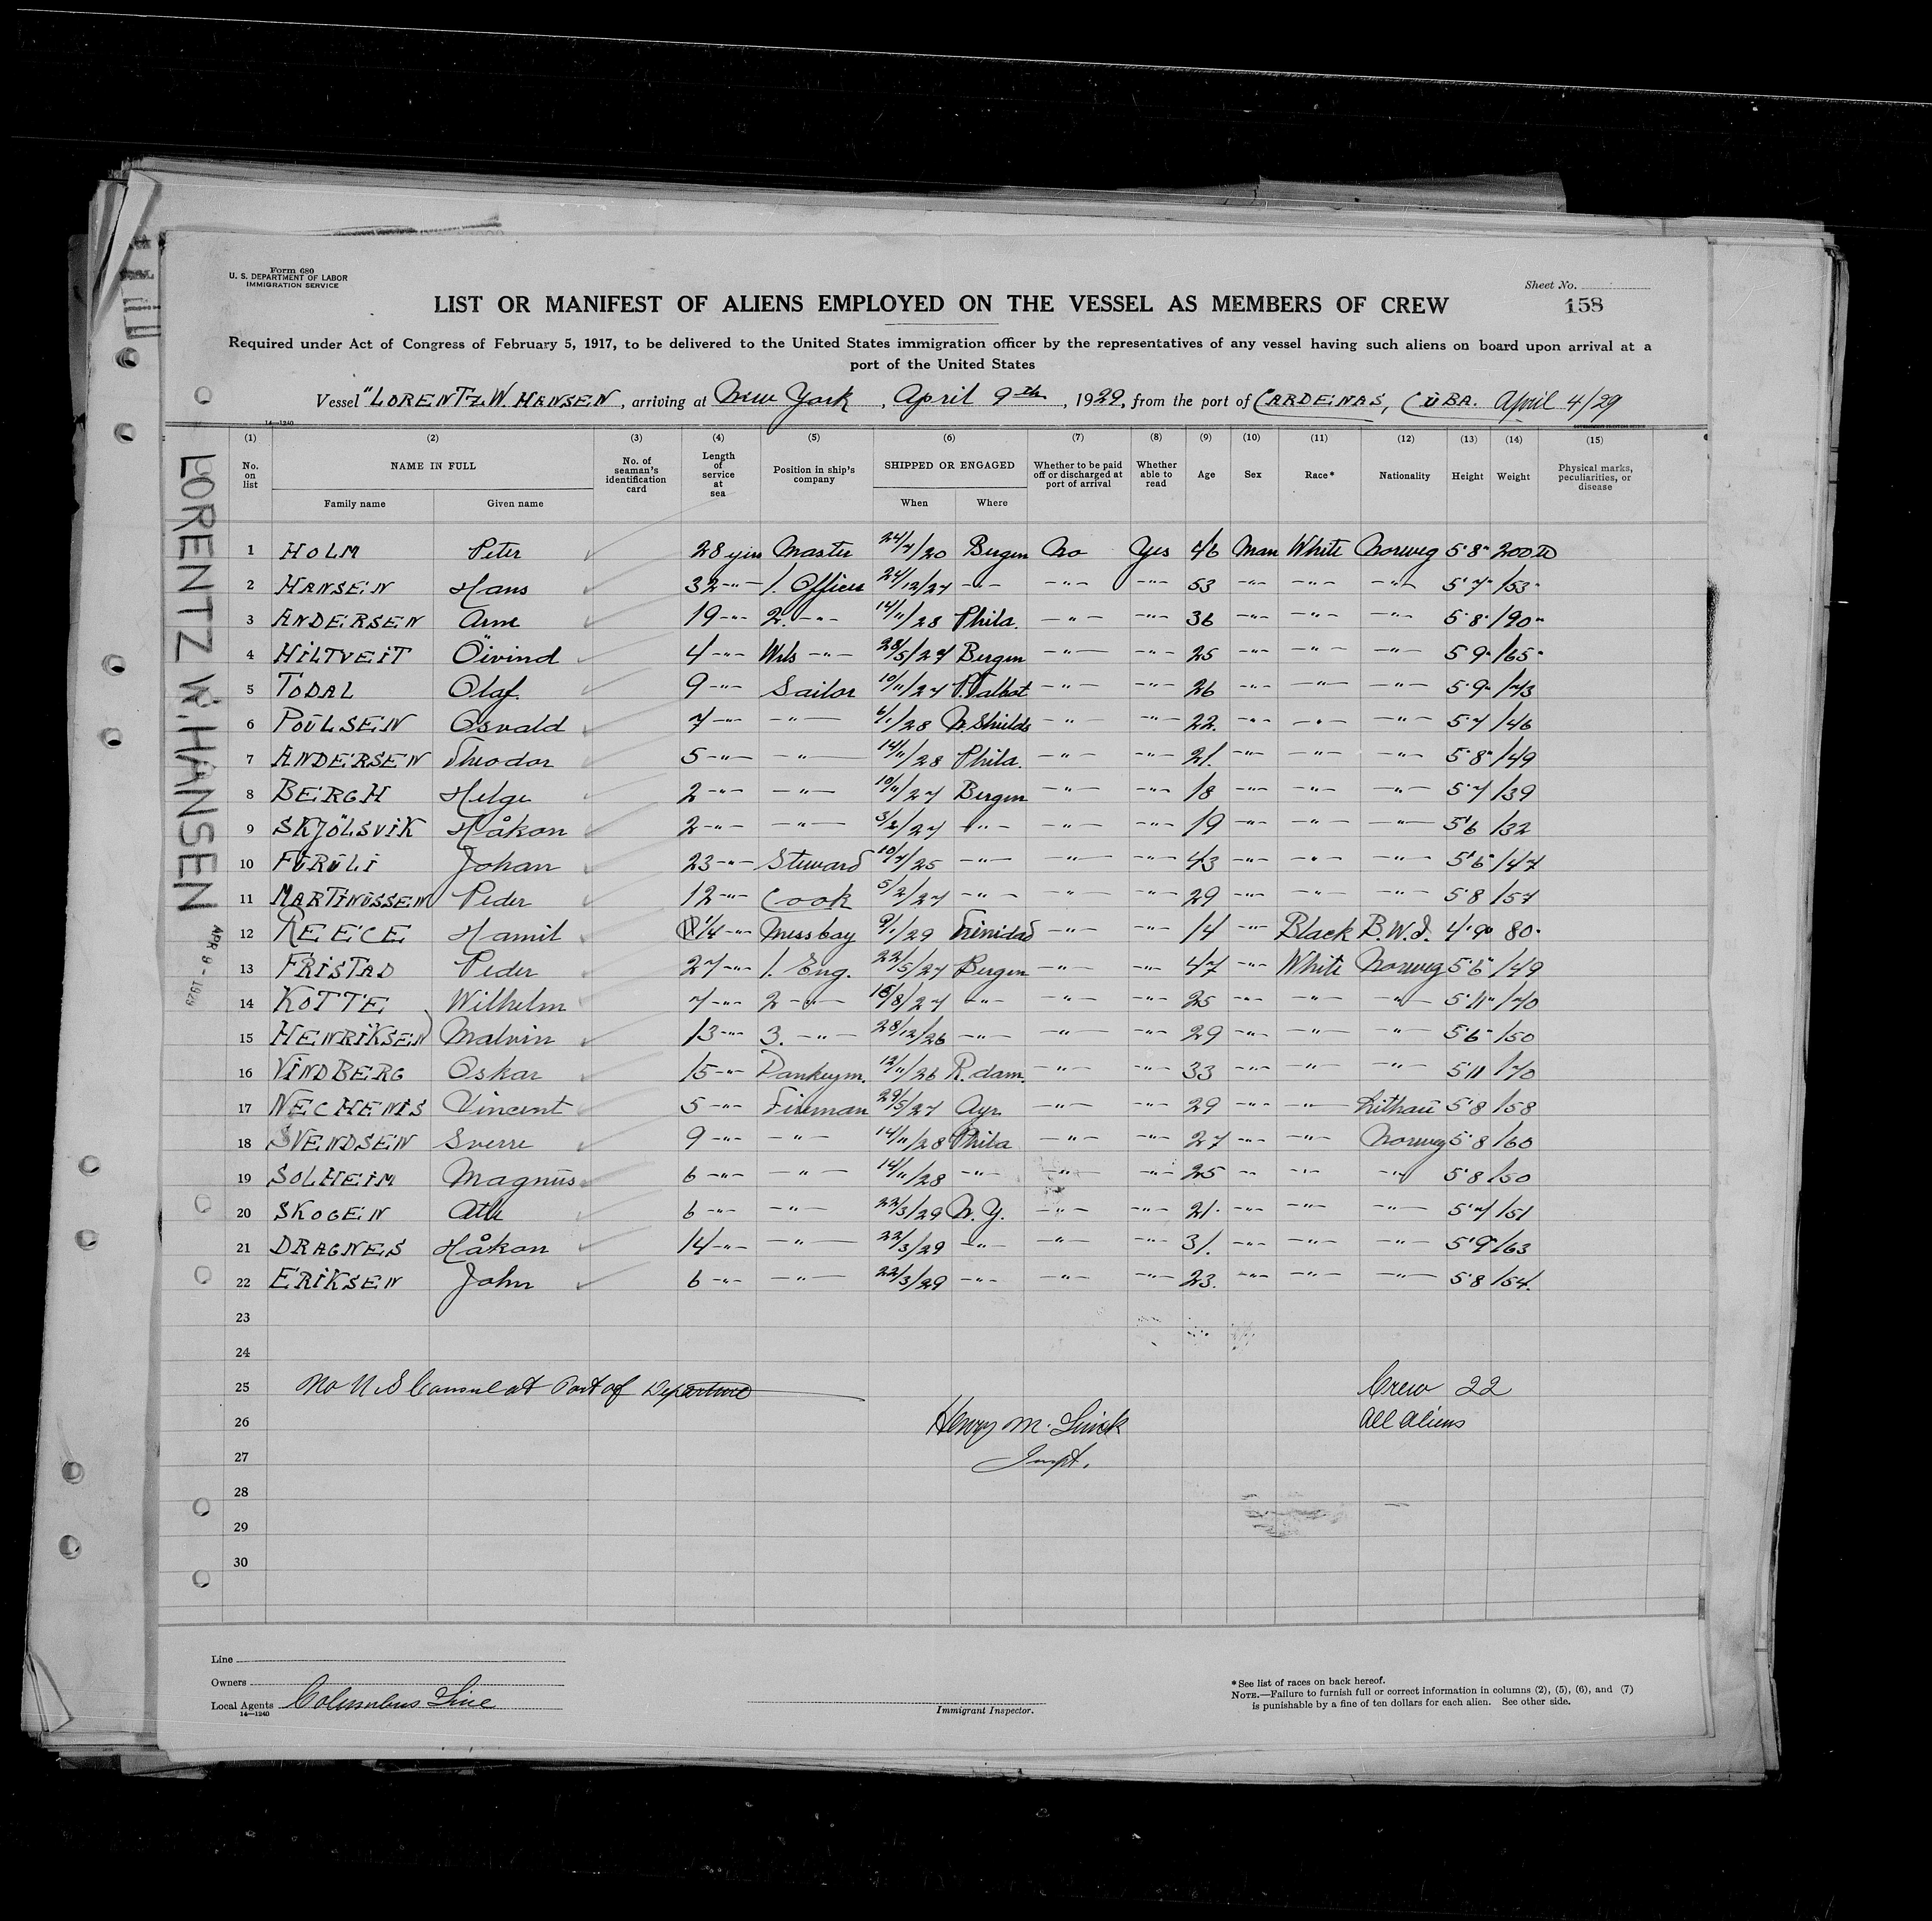 Form 680
U. S. DEPARTMENT OF LABOR
IMMIGRATION SERVICE
Sheet No.
158
LIST OR MANIFEST OF ALIENS EMPLOYED ON THE VESSEL AS MEMBERS OF CREW
Required under Act of Congress of February 5, 1917, to be delivered to the United States immigration officer by the representatives of any vessel having such aliens on board upon arrival at a
port of the United States
Vessel "LORENTZ W. HANSEN, arriving at New York, April 9th, 1929, from the port of CARDENAS, CŬBA. April 4/29
14—1240
(1) (2) (3) (4) (5) (6) (7) (8) (9) (10) (11) (12) (13) (14) (15)
No. on list NAME IN FULL Family name Given name No. of seaman's identification card Length of service at sea Position in ship's company SHIPPED OR ENGAGED When Where Whether to be paid off or discharged at port of arrival Whether able to read Age Sex Race* Nationality Height Weight Physical marks, peculiarities, or disease
1 HOLM Peter 28 yrs Master 24/7/20 Bergen No Yes 46 Man White Norweg 5'8" 200 lb
2 HANSEN Hans 32 -"- 1. Officer 24/12/27 -"- -"- -"- 53 -"- -"- -"- 5'7" 153"
3 ANDERSEN Arne 19 -"- 2. -"- 14/11/28 Phila. -"- -"- 36 -"- -"- -"- 5'8" 190"
4 HILTVEIT Öivind 4 -"- Wrls -"- 28/5/27 Bergen -"- -"- 25 -"- -"- -"- 5'9" 165"
5 TODAL Olaf 9 -"- Sailor 10/11/27 P.Talbot -"- -"- 26 -"- -"- -"- 5'9" 173
6 POŬLSEN Osvald 7 -"- -"- 6/1/28 N.Shields -"- -"- 22. -"- -"- -"- 5'7 146
7 ANDERSEN Theodor 5 -"- -"- 14/11/28 Phila. -"- -"- 21. -"- -"- -"- 5'8" 149
8 BERGH Helge 2 -"- -"- 10/11/27 Bergen -"- -"- 18 -"- -"- -"- 5'7 139
9 SKJÖLSVIK Håkon 2 -"- -"- 3/2/27 -"- -"- -"- 19 -"- -"- -"- 5'6 132
10 FŬRŬLI Johan 23 -"- Steward 10/7/25 -"- -"- -"- 43 -"- -"- -"- 5'6" 147
11 MARTINŬSSEN Peder 12 -"- Cook 5/2/27 -"- -"- -"- 29 -"- -"- -"- 5'8 157
12 REECE Hamil 1/4 -"- Messboy 9/1/29 Trinidad -"- -"- 14 -"- Black B.W.I. 4'9" 80"
13 FRISTAD Peder 27 -"- 1. Eng. 22/5/27 Bergen -"- -"- 47 -"- White Norweg 5'6" 149
14 KOTTE Wilhelm 7 -"- 2 -"- 15/8/27 -"- -"- -"- 25 -"- -"- -"- 5'11" 170
15 HENRIKSEN Malvin 13 -"- 3. -"- 28/12/26 -"- -"- -"- 29 -"- -"- -"- 5'6" 150
16 VINDBERG Oskar 15 -"- Donkeym. 12/11/26 R.dam. -"- -"- 33 -"- -"- -"- 5'11 170
17 NECHENIS Vincent 5 -"- Fireman 29/5/27 Ayr. -"- -"- 29 -"- -"- Lithaŭ 5'8 158
18 SVENDSEN Sverre 9 -"- -"- 14/11/28 Phila -"- -"- 27 -"- -"- Norweg 5'8 160
19 SOLHEIM Magnŭs 6 -"- -"- 14/11/28 -"- -"- -"- 25 -"- -"- -"- 5'8 150
20 SKOGEN Atle 6 -"- -"- 22/3/29 N.Y. -"- -"- 21. -"- -"- -"- 5'7 151
21 DRAGNES Håkon 14 -"- -"- 22/3/29 -"- -"- -"- 31. -"- -"- -"- 5'9" 163
22 ERIKSEN John 6 -"- -"- 22/3/29 -"- -"- -"- 23. -"- -"- -"- 5'8 154.
23
24
25 No U S Consul at Port of Departure Crew 22
26 Henry M. All Aliens
27 Inspt.
28
29
30
LORENTZ W. HANSEN
APR 9 - 1929
Line
Owners
Local Agents Columbus Line
14—1240
Immigrant Inspector.
*See list of races on back hereof.
NOTE.—Failure to furnish full or correct information in columns (2), (5), (6), and (7)
is punishable by a fine of ten dollars for each alien. See other side.